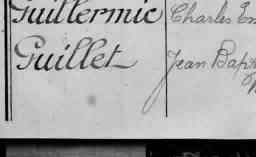 Guillermic Charles Em
Guillet Jean Bapt